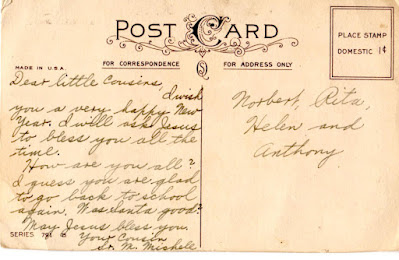 POST CARD
PLACE STAMP
DOMESTIC 1¢
MADE IN U.S.A.
FOR CORRESPONDENCE
FOR ADDRESS ONLY
Dear little Cousins,
I wish
you a very happy New
Year. I will ask Jesus
to bless you all the
time.
How are you all?
I guess you are glad
to go back to school
again. Was Santa good?
May Jesus bless you.
Your Cousin
Sr. M. Michele
Norbert, Rita,
Helen and
Anthony
SERIES